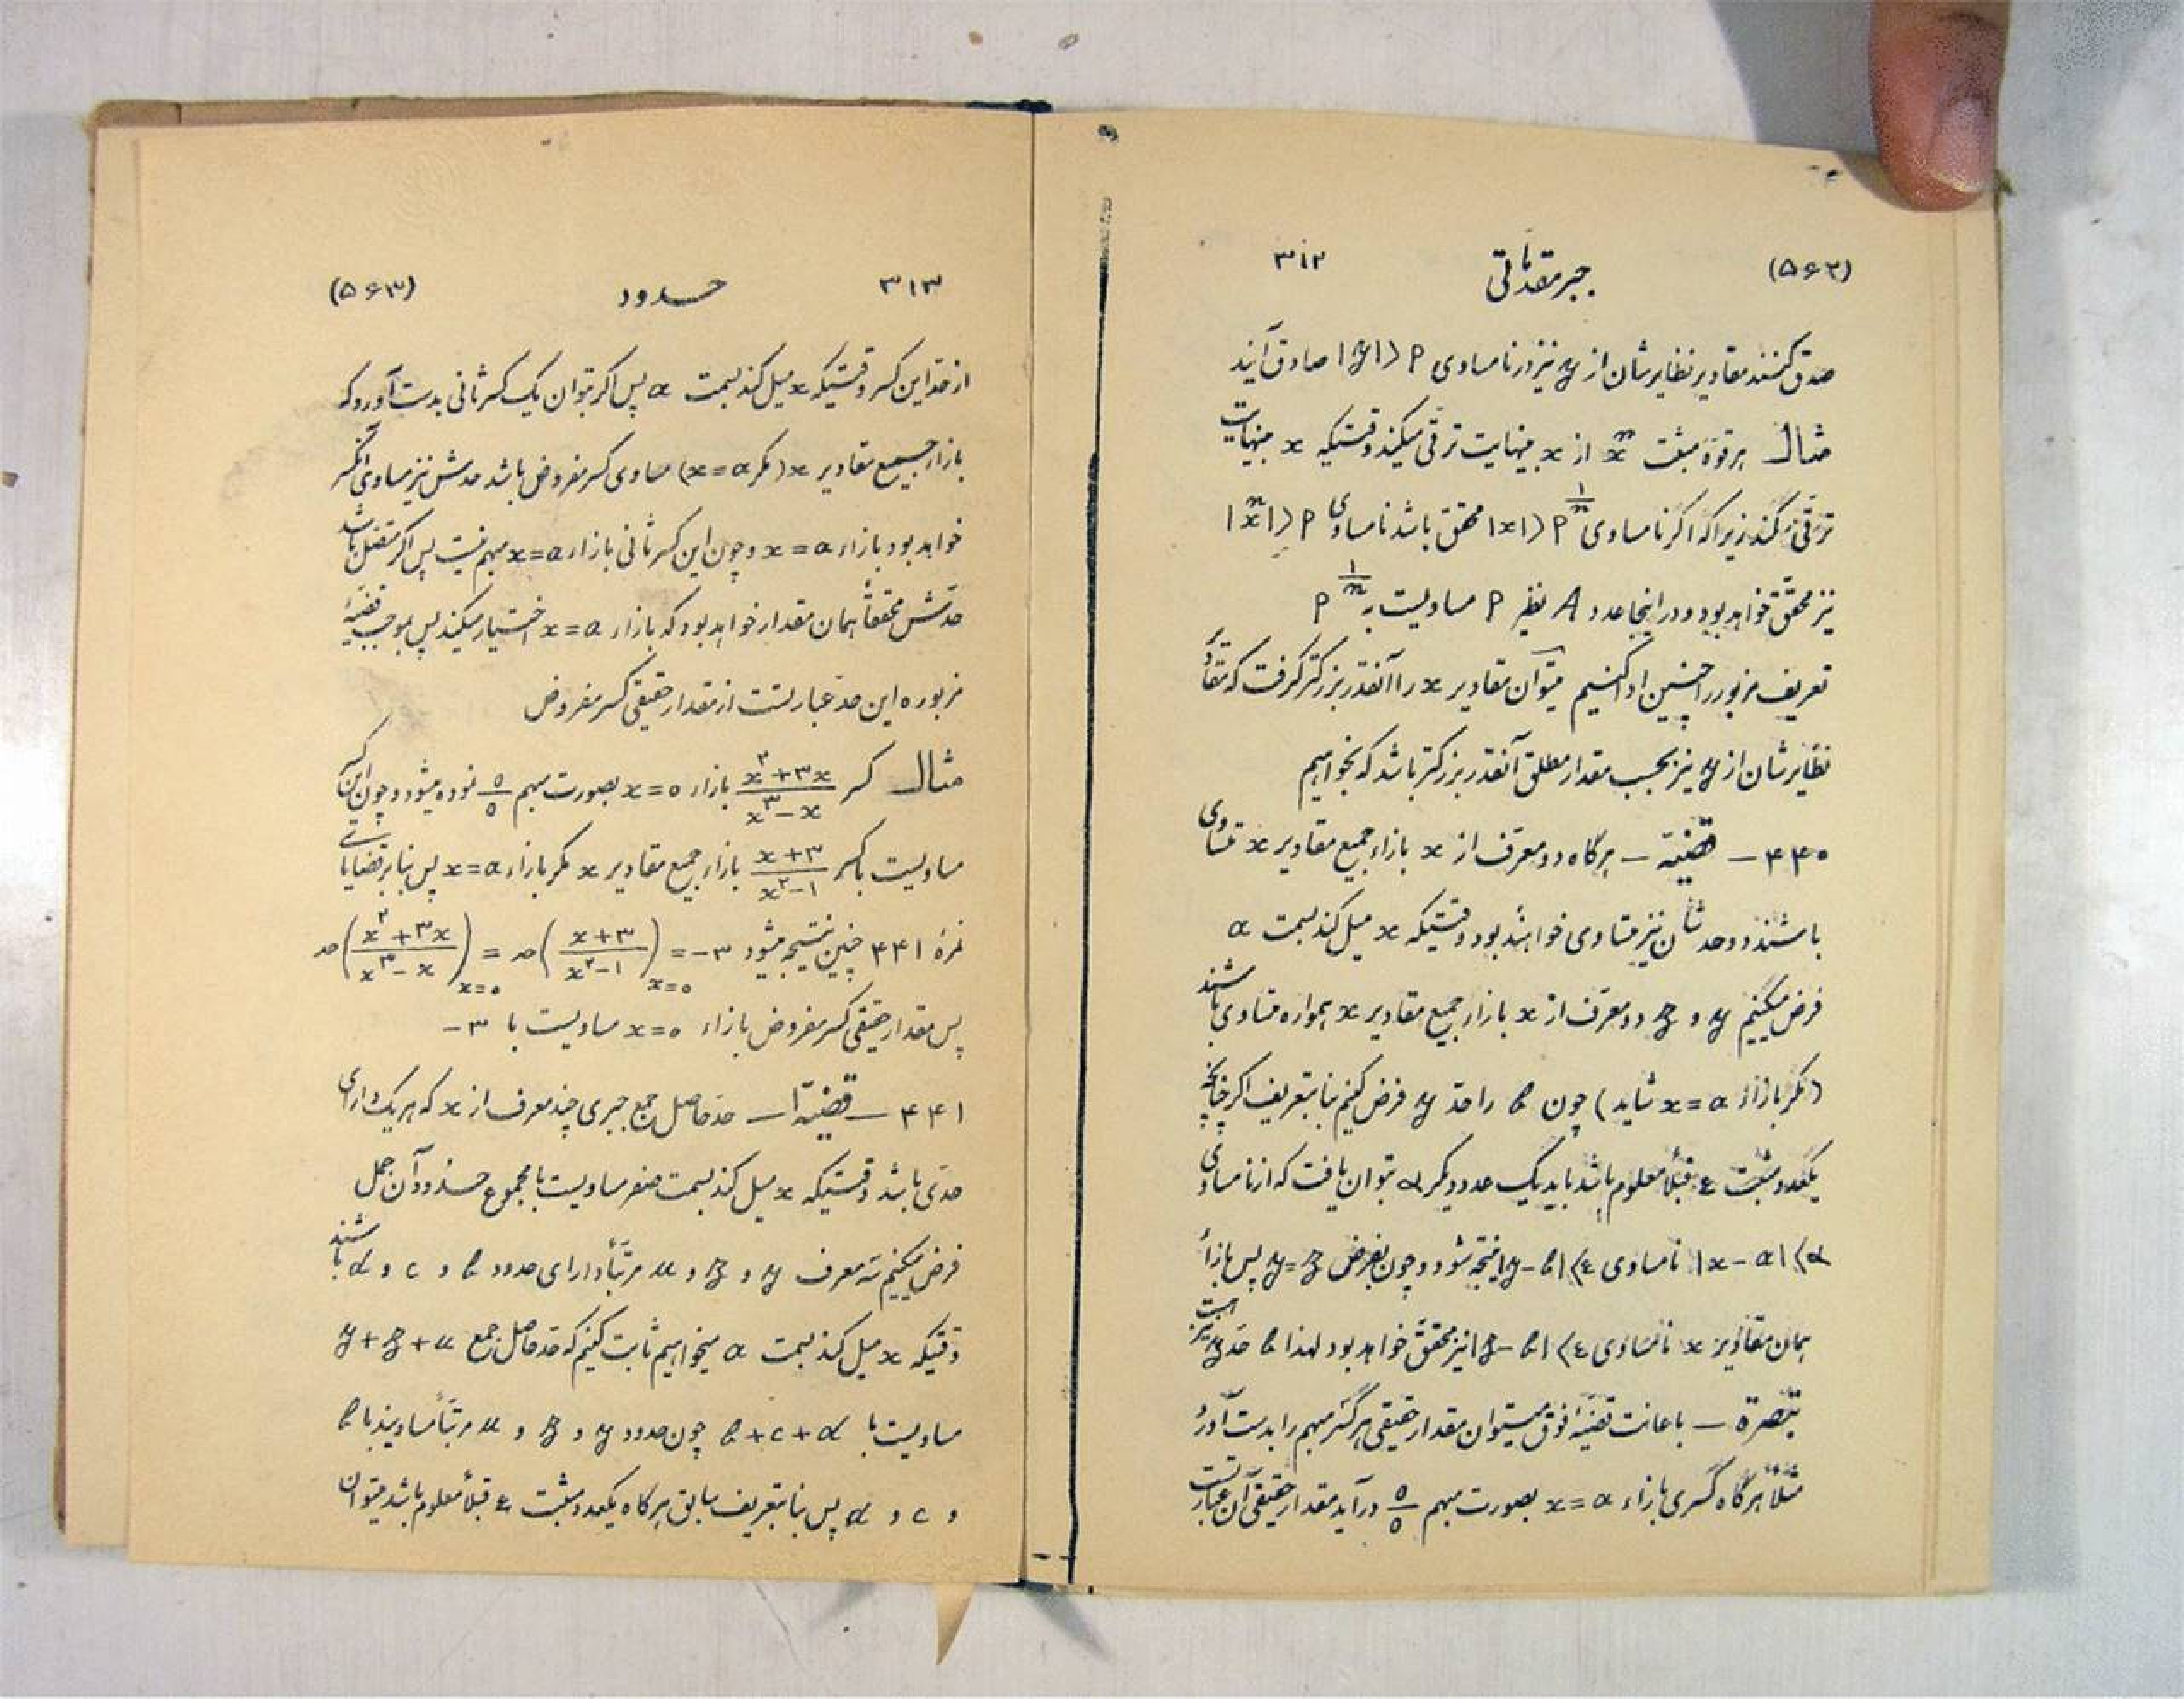 (۵۶۲) جبر مقدماتی ۳۱۲
صدق کنند مقادیر نظایرشان از y نیز در نامساوی |y|>P صادق آیند
مثال هر قوهٔ مثبت xᵐ از x بینهایت ترقی میکند وقتیکه x بینهایت
ترقی کند زیرا که اگر نامساوی |x|>P^(۱/m) محقق باشد نامساوی |xᵐ|>P
نیز محقق خواهد بود و در اینجا عدد A نظیر P مساویست به P^(۱/m)
تعریف مزبور را چنین ادا کنیم میتوان مقادیر x را آنقدر بزرگتر گرفت که مقادیر
نظایرشان از y نیز بحسب مقدار مطلق آنقدر بزرگتر باشد که بخواهیم
۴۴۰ – قضیّة – هرگاه دو معرف از x بازاء جمیع مقادیر x متساوی
باشند دو حدشان نیز متساوی خواهند بود وقتیکه x میل کند بسمت a
فرض میکنیم y و z دو معرف از x بازاء جمیع مقادیر x همواره متساوی باشند
(مگر بازاء x=a شاید) چون b را حدّ y فرض کنیم بنا بتعریف اگر چنانچه
یکعدد مثبت ε قبلاً معلوم باشد باید یک عدد دیگر α بتوان یافت که از نامساوی
|x-a|<α نامساوی |y-b|<ε نتیجه شود و چون بفرض y=z پس بازاء
همان مقادیر x نامساوی |z-b|<ε نیز محقق خواهد بود لهذا b حدّ z نیز است
تبصرة – باعانت قضیّهٔ فوق میتوان مقدار حقیقی هر کسر مبهم را بدست آورد
مثلاً هرگاه کسری بازاء x=a بصورت مبهم ۰/۰ درآید مقدار حقیقی آن عبارتست
۳۱۳ حدود (۵۶۳)
از حدّ این کسر وقتیکه x میل کند بسمت a پس اگر بتوان یک کسر ثانی بدست آورد که
بازاء جمیع مقادیر x (مگر x=a) مساوی کسر مفروض باشد حدش نیز مساوی آن کسر
خواهد بود بازاء x=a و چون این کسر ثانی بازاء x=a مبهم نیست پس اگر متصل باشد
حدّش محققاً همان مقدار خواهد بود که بازاء x=a اختیار میکند پس بموجب قضیّهٔ
مزبوره این حدّ عبارتست از مقدار حقیقی کسر مفروض
مثال کسر (x²+۳x)/(x³-x) بازاء x=۰ بصورت مبهم ۰/۰ نموده میشود و چون این کسر
مساویست با کسر (x+۳)/(x²-۱) بازاء جمیع مقادیر x مگر بازاء x=a پس بنا بر قضایای
نمرهٔ ۴۴۱ چنین نتیجه میشود حد((x²+۳x)/(x³-x))ₓ₌₀ = حد((x+۳)/(x²-۱))ₓ₌₀ = -۳
پس مقدار حقیقی کسر مفروض بازاء x=۰ مساویست با -۳
۴۴۱ – قضیّة ۱ – حدّ حاصل جمع جبری چند معرف از x که هر یک دارای
حدّی باشد وقتیکه x میل کند بسمت صفر مساویست با مجموع حدود آن جمل
فرض میکنیم سه معرف y و z و u مرتباً دارای حدود b و c و d باشند
وقتیکه x میل کند بسمت a میخواهیم ثابت کنیم که حدّ حاصل جمع y+z+u
مساویست با b+c+d چون حدود y و z و u مرتباً مساویند با b
و c و d پس بنا بتعریف سابق هرگاه یکعدد مثبت ε قبلاً معلوم باشد میتوان